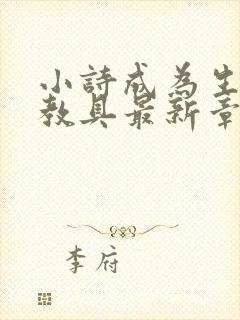 小詩成為生
教具最新章
李府